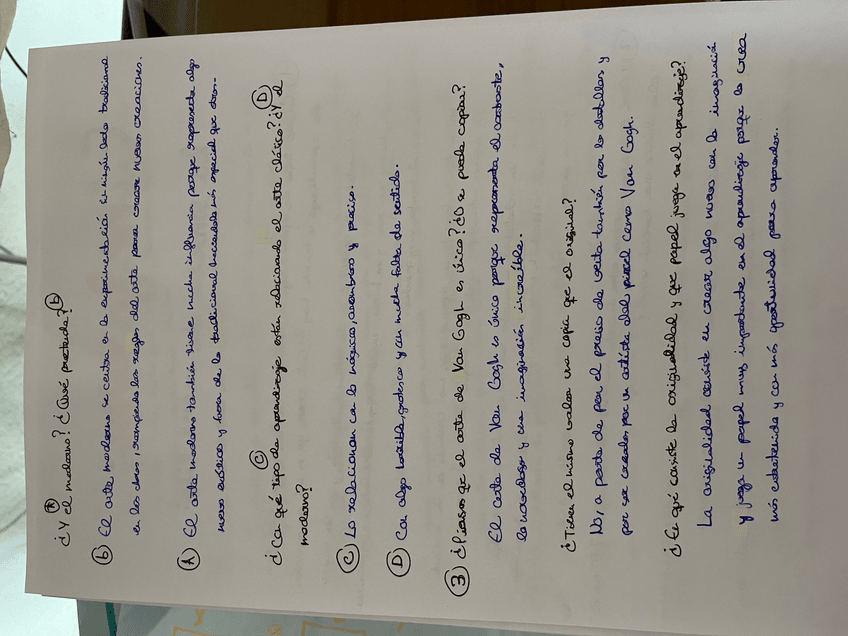 ¿Y el moderno? (A) ¿Qué pretende? (b)
(b) El arte moderno se centra en la experimentación sin ningún lado tradicional
en las obras, rompiendo las reglas del arte para crear nuevas creaciones.
(A) El arte moderno también tiene mucha influencia porque representa algo
nuevo exótico y fuera de lo tradicional haciendolo más especial que otros.
¿Con qué tipo de aprendizaje están relacionando el arte clásico? (C) ¿Y el (D)
moderno?
(C) Lo relacionan con lo mágico, asombroso y preciso.
(D) Con algo horrible, grotesco y con mucha falta de sentido.
(3) ¿Piensas que el arte de Van Gogh es único? ¿O se puede copiar?
El arte de Van Gogh es único porque representa el contraste,
lo novedoso y una imaginación increíble.
¿Tiene el mismo valor una copia que el original?
No, a parte de por el precio de venta también por los detalles y
por ser creados por un artista del pincel como Van Gogh.
¿En qué consiste la originalidad y que papel juega en el aprendizaje?
La originalidad consiste en crear algo nuevo con la imaginación
y juega un papel muy importante en el aprendizaje porque lo crea
más entretenido y con más oportunidad para aprender.